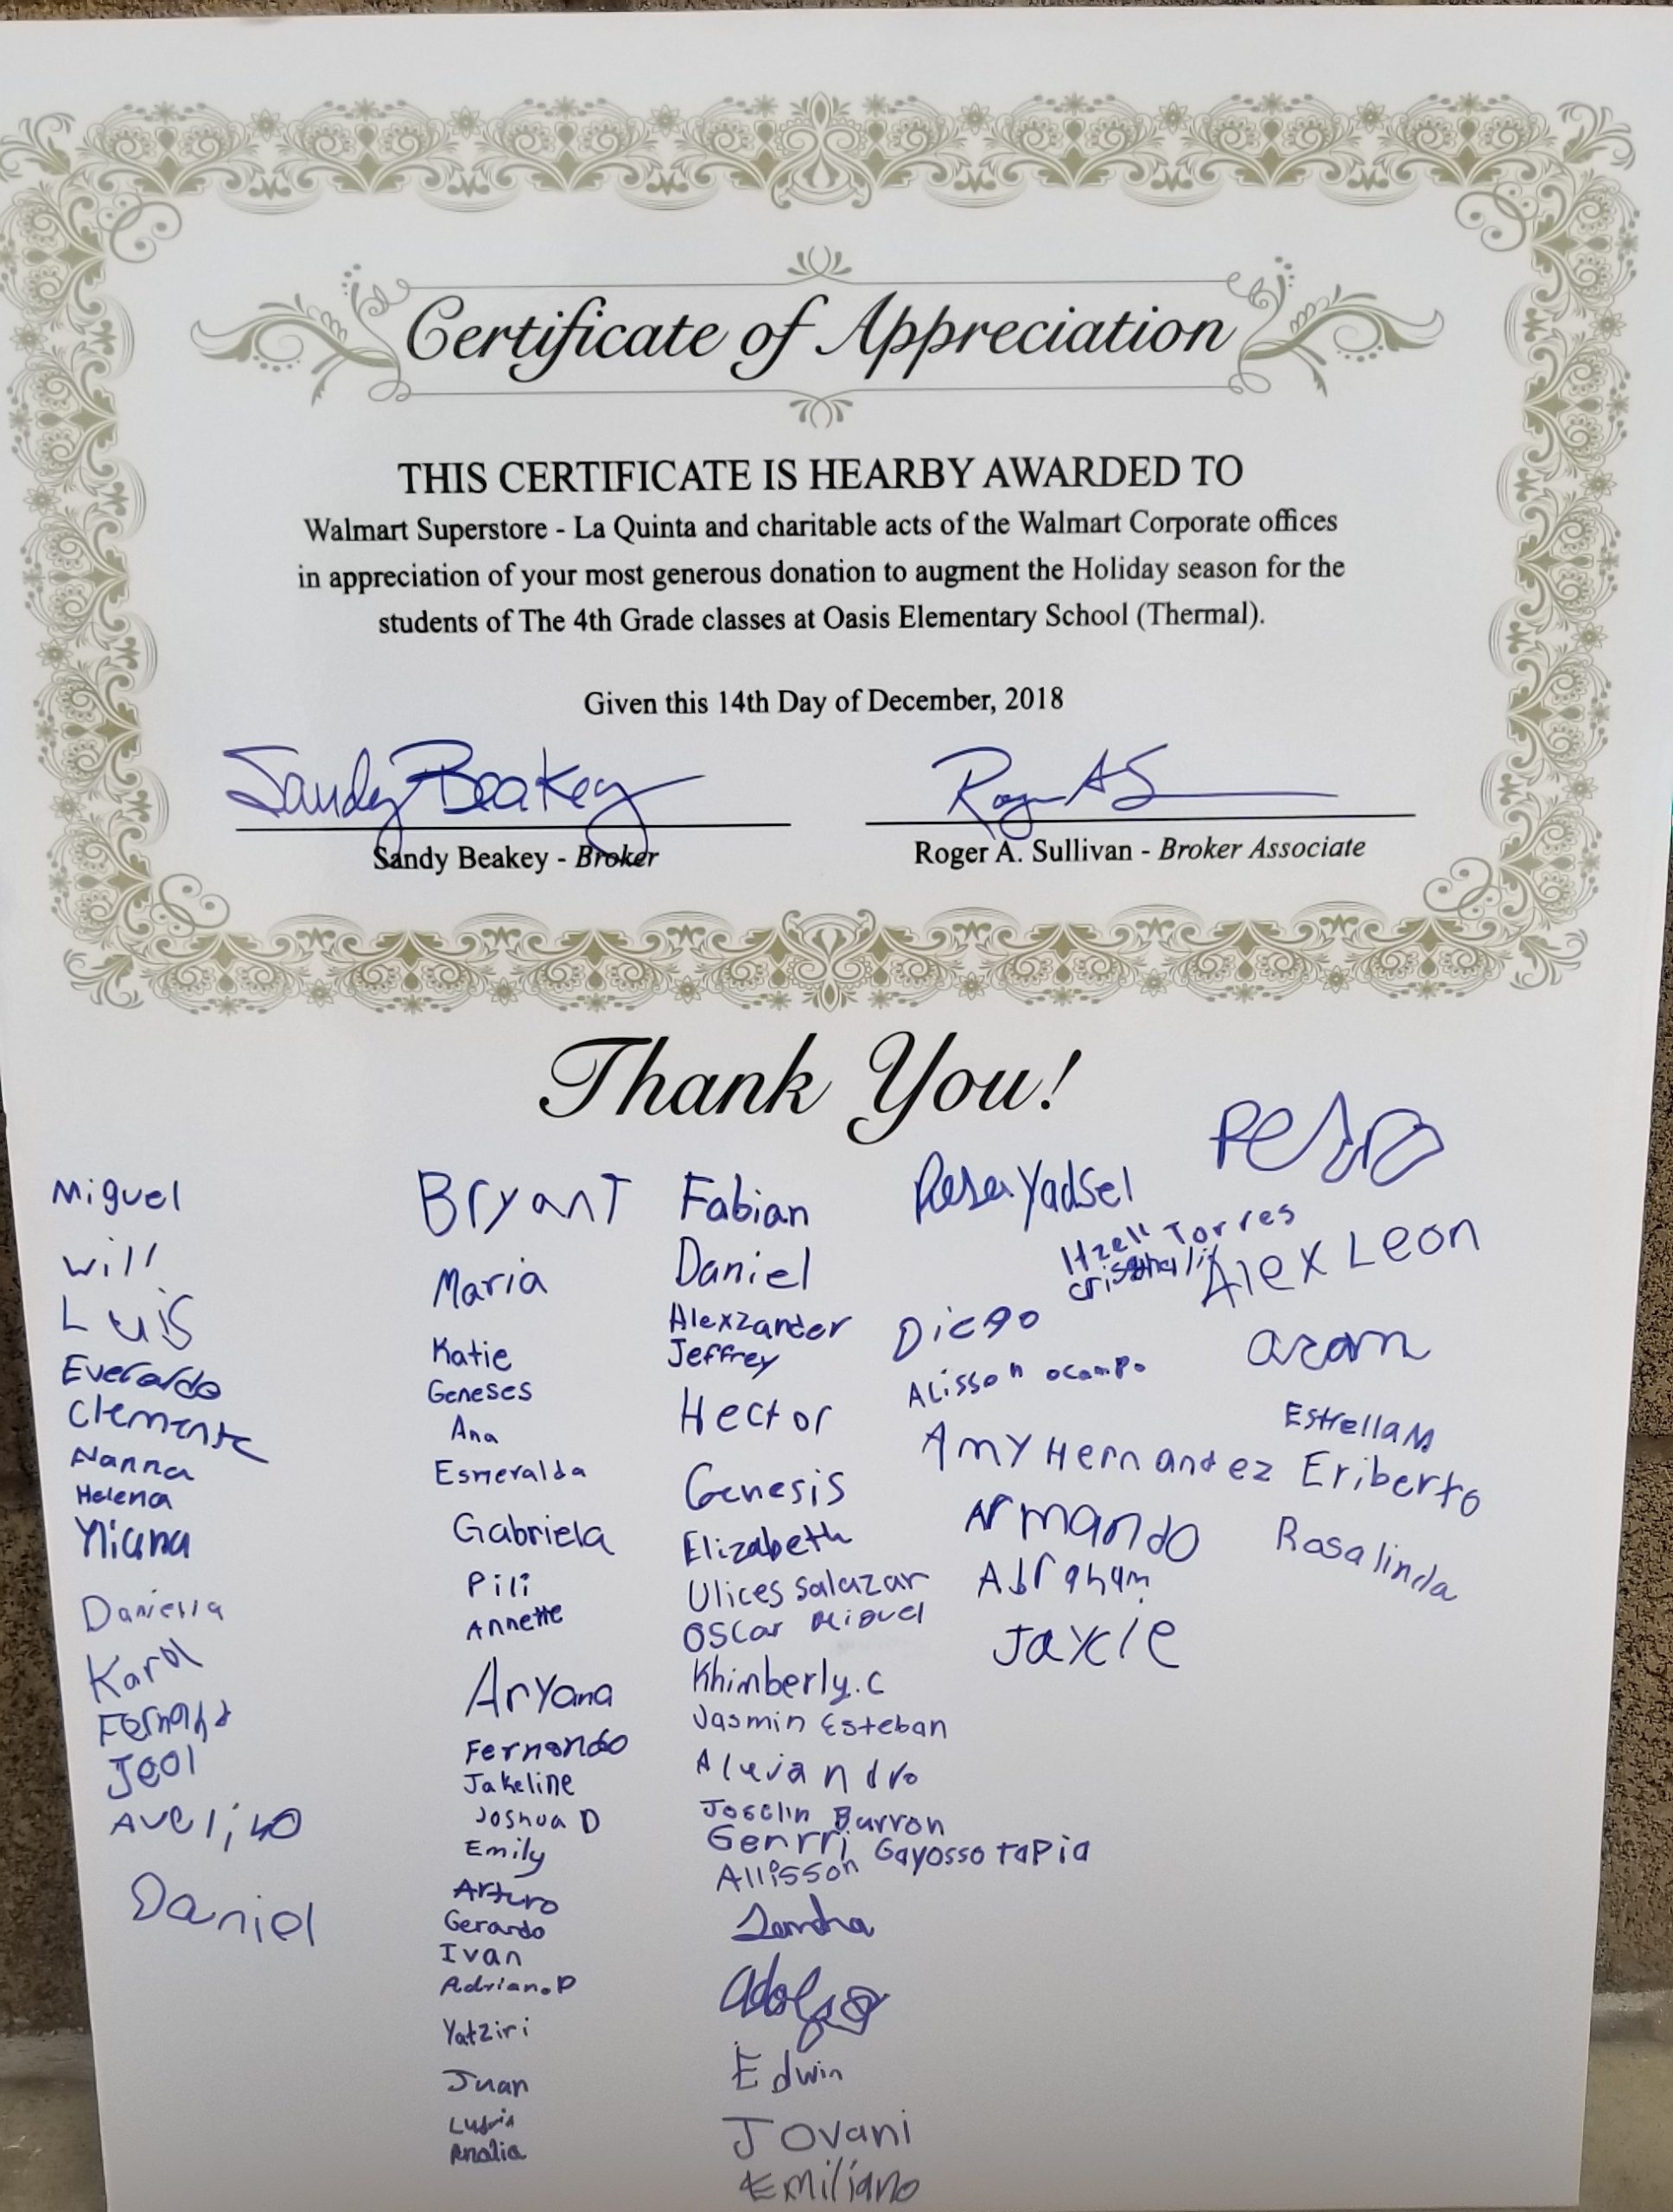 Certificate of Appreciation
THIS CERTIFICATE IS HEARBY AWARDED TO
Walmart Superstore - La Quinta and charitable acts of the Walmart Corporate offices
in appreciation of your most generous donation to augment the Holiday season for the
students of The 4th Grade classes at Oasis Elementary School (Thermal).
Given this 14th Day of December, 2018
Sandy Beakey
Sandy Beakey - Broker
Roger A. Sullivan - Broker Associate
Thank You!
Miguel
Will
Luis
Everardo
Clemente
Nanna
Helena
Daniella
Karol
Jeol
Daniel
Bryant
Maria
Katie
Geneses
Ana
Esmeralda
Gabriela
Pili
Annette
Aryana
Fernando
Jakeline
Joshua D
Emily
Arturo
Gerardo
Ivan
Adrian.P
Yatziri
Juan
Analia
Fabian
Daniel
Alexzander
Jeffrey
Hector
Genesis
Elizabeth
Ulices Salazar
Oscar Miguel
Khimberly.C
Jasmin Esteban
Joselin Barron
Genrri Gayosso Tapia
Allisson
Edwin
Jovani
Emiliano
Yadsel
Torres
Diego
Alisson Ocampo
Amy Hernandez
Armando
Abraham
Jaycie
Alex Leon
Estrella M
Eriberto
Rosalinda